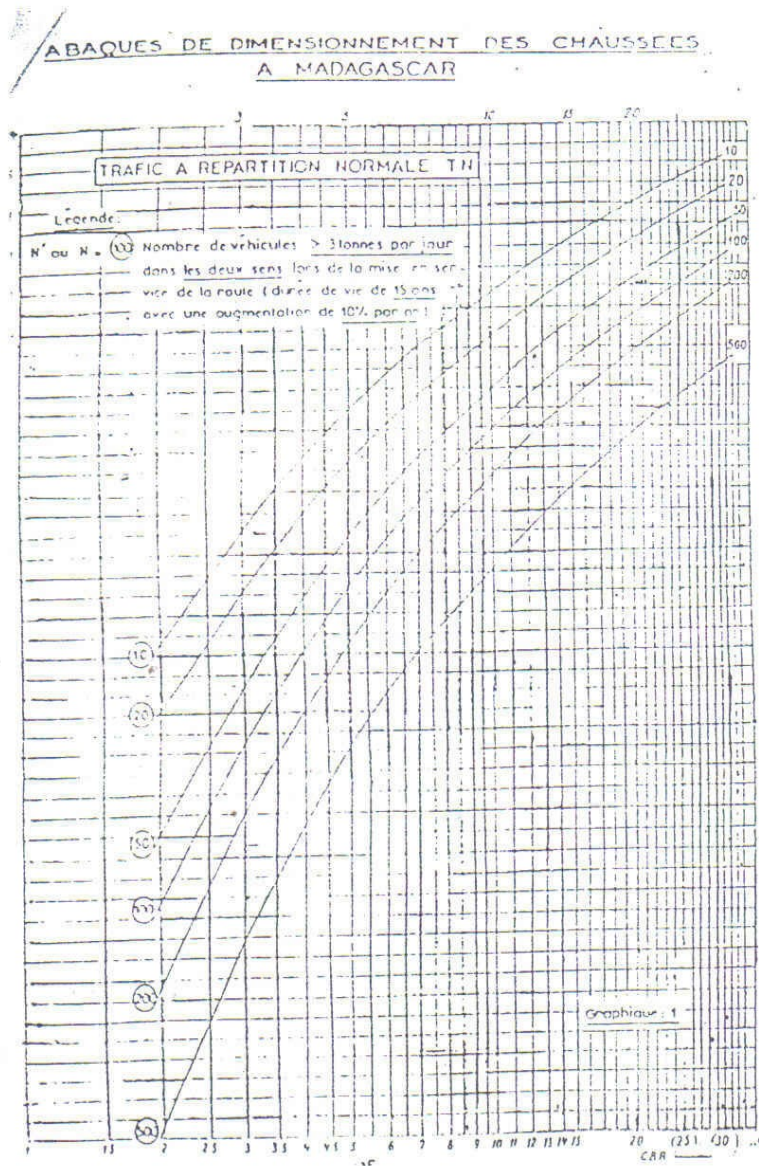 ABAQUES DE DIMENSIONNEMENT DES CHAUSSEES
A MADAGASCAR
3 5 10 15 20
TRAFIC A REPARTITION NORMALE TN
Légende:
N' ou N = (100) Nombre de véhicules > 3 tonnes par jour
dans les deux sens lors de la mise en ser-
vice de la route (durée de vie de 15 ans
avec une augmentation de 10% par an)
10
20
50
100
200
10
20
50
100
200
500
Graphique: 1
1 1 5 2 2 5 3 3.5 4 4 5 5 6 7 8 9 10 11 12 13 14 15 20 (25) (30)
CBR